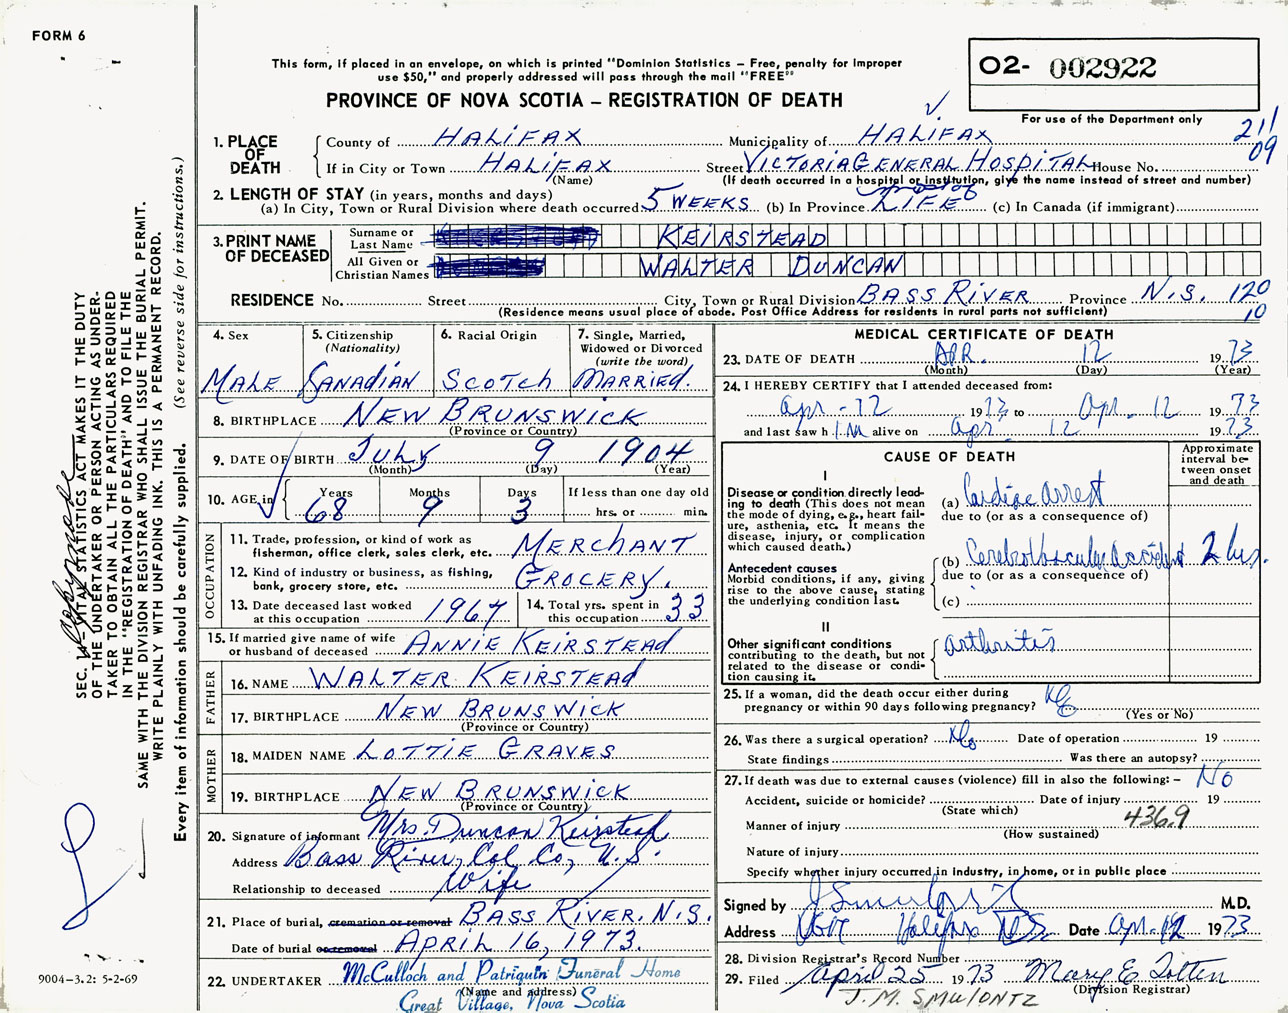 FORM 6
This form, if placed in an envelope, on which is printed "Dominion Statistics – Free, penalty for improper
use $50," and properly addressed will pass through the mail "FREE"
PROVINCE OF NOVA SCOTIA – REGISTRATION OF DEATH
O2- 002922
For use of the Department only
211
09
1. PLACE OF DEATH
County of HALIFAX Municipality of HALIFAX
If in City or Town HALIFAX Street VICTORIA GENERAL HOSPITAL House No.
(Name) (If death occurred in a hospital or institution, give the name instead of street and number)
2. LENGTH OF STAY (in years, months and days)
(a) In City, Town or Rural Division where death occurred 5 WEEKS (b) In Province LIFE (c) In Canada (if immigrant)
3. PRINT NAME OF DECEASED
Surname or Last Name KEIRSTEAD
All Given or Christian Names WALTER DUNCAN
RESIDENCE No. Street City, Town or Rural Division BASS RIVER Province N.S. 120
(Residence means usual place of abode. Post Office Address for residents in rural parts not sufficient) 10
4. Sex
MALE
5. Citizenship
(Nationality)
CANADIAN
6. Racial Origin
SCOTCH
7. Single, Married,
Widowed or Divorced
(write the word)
MARRIED.
8. BIRTHPLACE NEW BRUNSWICK
(Province or Country)
9. DATE OF BIRTH July 9 1904
(Month) (Day) (Year)
10. AGE in
Years Months Days If less than one day old
68 9 3 hrs. or min.
OCCUPATION
11. Trade, profession, or kind of work as
fisherman, office clerk, sales clerk, etc. MERCHANT
12. Kind of industry or business, as fishing,
bank, grocery store, etc. GROCERY.
13. Date deceased last worked
at this occupation 1967
14. Total yrs. spent in
this occupation 33
15. If married give name of wife
or husband of deceased ANNIE KEIRSTEAD
FATHER
16. NAME WALTER KEIRSTEAD
17. BIRTHPLACE NEW BRUNSWICK
(Province or Country)
MOTHER
18. MAIDEN NAME LOTTIE GRAVES
19. BIRTHPLACE NEW BRUNSWICK
(Province or Country)
20. Signature of informant Mrs. Duncan Keirstead
Address Bass River, Col. Co., N.S.
Relationship to deceased Wife
21. Place of burial, cremation or removal BASS RIVER, N.S.
Date of burial or removal APRIL 16, 1973.
22. UNDERTAKER McCulloch and Patriquin Funeral Home
(Name and address)
Great Village, Nova Scotia
MEDICAL CERTIFICATE OF DEATH
23. DATE OF DEATH APR. 12 1973
(Month) (Day) (Year)
24. I HEREBY CERTIFY that I attended deceased from:
Apr - 12 1973 to Apr - 12 1973
and last saw him alive on Apr 12 1973
CAUSE OF DEATH
Approximate
interval be-
tween onset
and death
I
Disease or condition directly lead-
ing to death (This does not mean
the mode of dying, e.g., heart fail-
ure, asthenia, etc. It means the
disease, injury, or complication
which caused death.)
(a) Cardiac Arrest
due to (or as a consequence of)
Antecedent causes
Morbid conditions, if any, giving
rise to the above cause, stating
the underlying condition last.
(b) Cerebrovascular Accident 2 hrs.
due to (or as a consequence of)
(c)
II
Other significant conditions
contributing to the death, but not
related to the disease or condi-
tion causing it.
Arthritis
25. If a woman, did the death occur either during
pregnancy or within 90 days following pregnancy?
(Yes or No)
26. Was there a surgical operation? No Date of operation 19
State findings Was there an autopsy?
27. If death was due to external causes (violence) fill in also the following: – No
Accident, suicide or homicide? Date of injury 19
(State which)
Manner of injury 436.9
(How sustained)
Nature of injury
Specify whether injury occurred in industry, in home, or in public place
Signed by M.D.
Address VGH Halifax NS Date Apr. 12 1973
28. Division Registrar's Record Number
29. Filed April 25 1973 Mary E Totten
(Division Registrar)
J. M. SMULONTZ
SEC. VITAL STATISTICS ACT MAKES IT THE DUTY
OF THE UNDERTAKER OR PERSON ACTING AS UNDER-
TAKER TO OBTAIN ALL THE PARTICULARS REQUIRED
IN THE "REGISTRATION OF DEATH" AND TO FILE THE
SAME WITH THE DIVISION REGISTRAR WHO SHALL ISSUE THE BURIAL PERMIT.
WRITE PLAINLY WITH UNFADING INK. THIS IS A PERMANENT RECORD.
Every item of information should be carefully supplied. (See reverse side for instructions.)
9004-3.2: 5-2-69